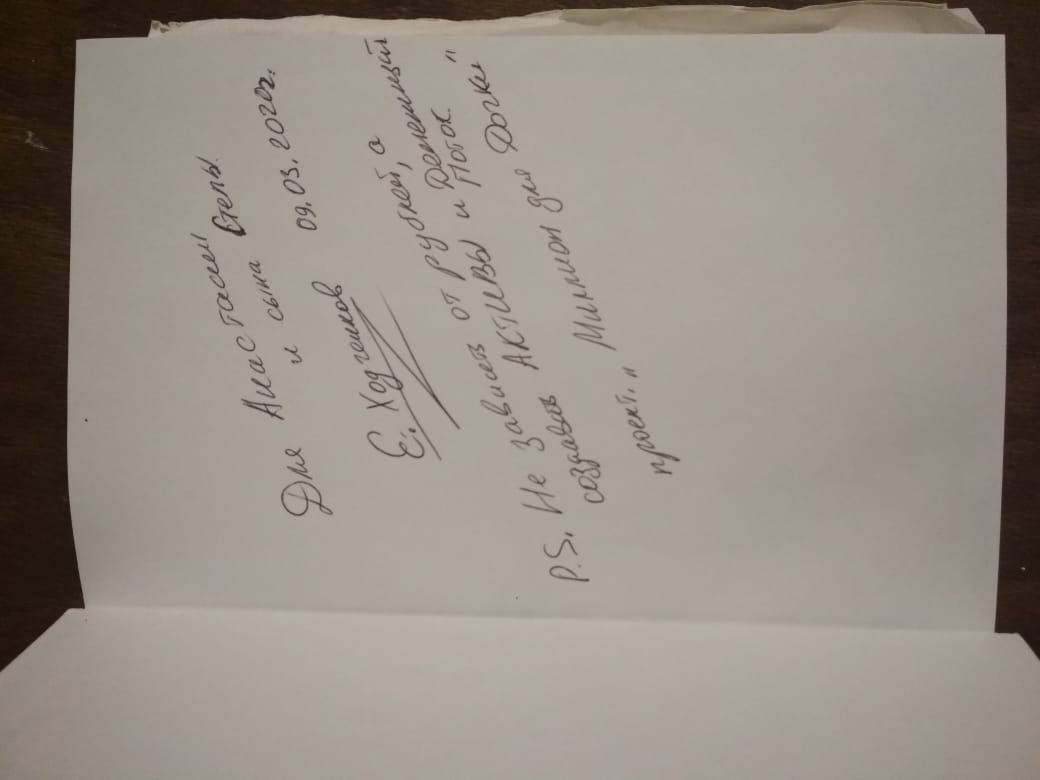 Для Анастасии
и сына Степы
09.03.2020г.
Е. Ходченков
P.S. Не зависеть от рублей, а
создавать АКТИВЫ и Денежный
Поток
проект „Миллион для Дочки"